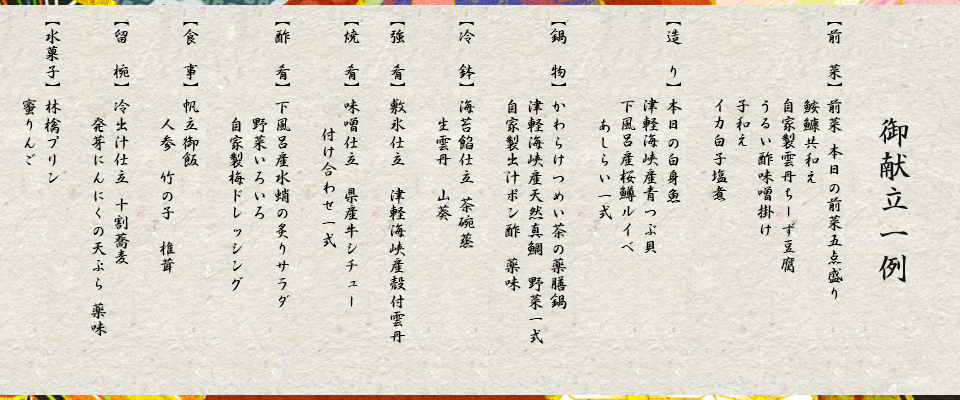 御献立一例
【前　菜】前菜 本日の前菜五点盛り
鮟鱇共和え
自家製雲丹ちーず豆腐
うるい酢味噌掛け
子和え
イカ白子塩煮
【造　り】本日の白身魚
津軽海峡産青つぶ貝
下風呂産桜鱒ルイベ
あしらい一式
【鍋　物】かわらけつめい茶の薬膳鍋
津軽海峡産天然真鯛　野菜一式
自家製出汁ポン酢　薬味
【冷　鉢】海苔餡仕立　茶碗蒸
生雲丹　山葵
【強　肴】敷氷仕立　津軽海峡産殻付雲丹
【焼　肴】味噌仕立　県産牛シチュー
付け合わせ一式
【酢　肴】下風呂産水蛸の炙りサラダ
野菜いろいろ
自家製梅ドレッシング
【食　事】帆立御飯
人参　竹の子　椎茸
【留　椀】冷出汁仕立　十割蕎麦
発芽にんにくの天ぷら　薬味
【水菓子】林檎プリン
蜜りんご